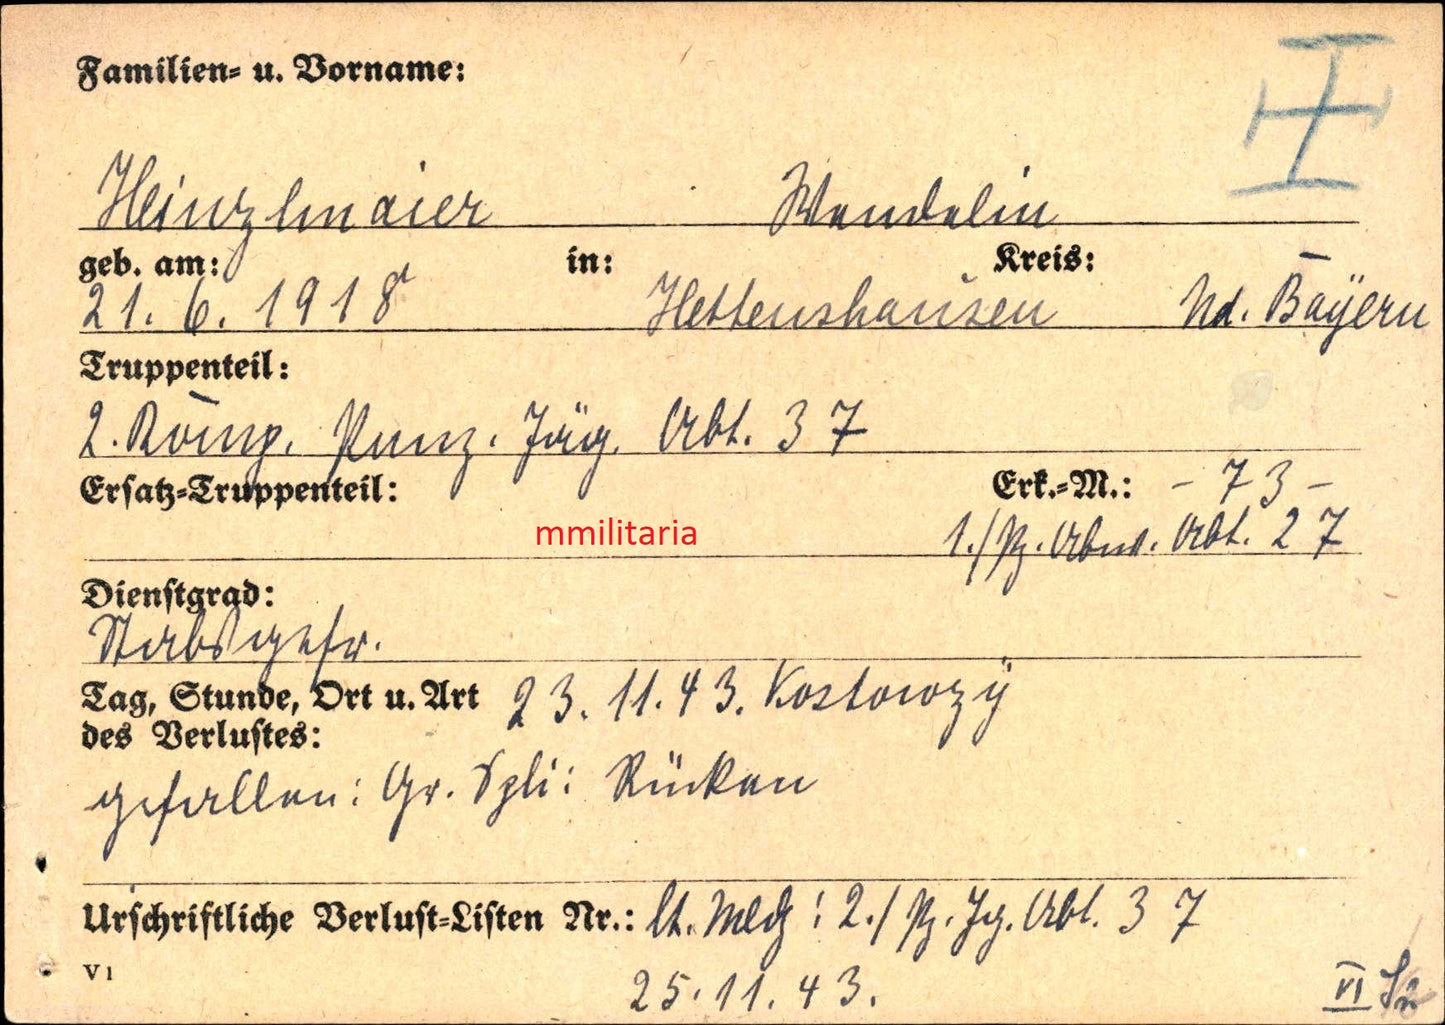 Familien- u. Vorname:
Heinzlmaier Wendelin
geb. am: in: Kreis:
21. 6. 1918 Hettenshausen Nd. Bayern
Truppenteil:
2. Komp. Panz. Jäg. Abt. 37
Ersatz-Truppenteil: Erk.-M.: - 73 -
mmilitaria 1./Pz. Abw. Abt. 27
Dienstgrad:
Stabsgefr.
Tag, Stunde, Ort u. Art 23. 11. 43. Kostowzy
des Verlustes:
gefallen: Gr. Spli: Rücken
Urschriftliche Verlust-Listen Nr.: lt. Meldg: 2./Pz. Jg. Abt. 37
V 1 25. 11. 43. VI